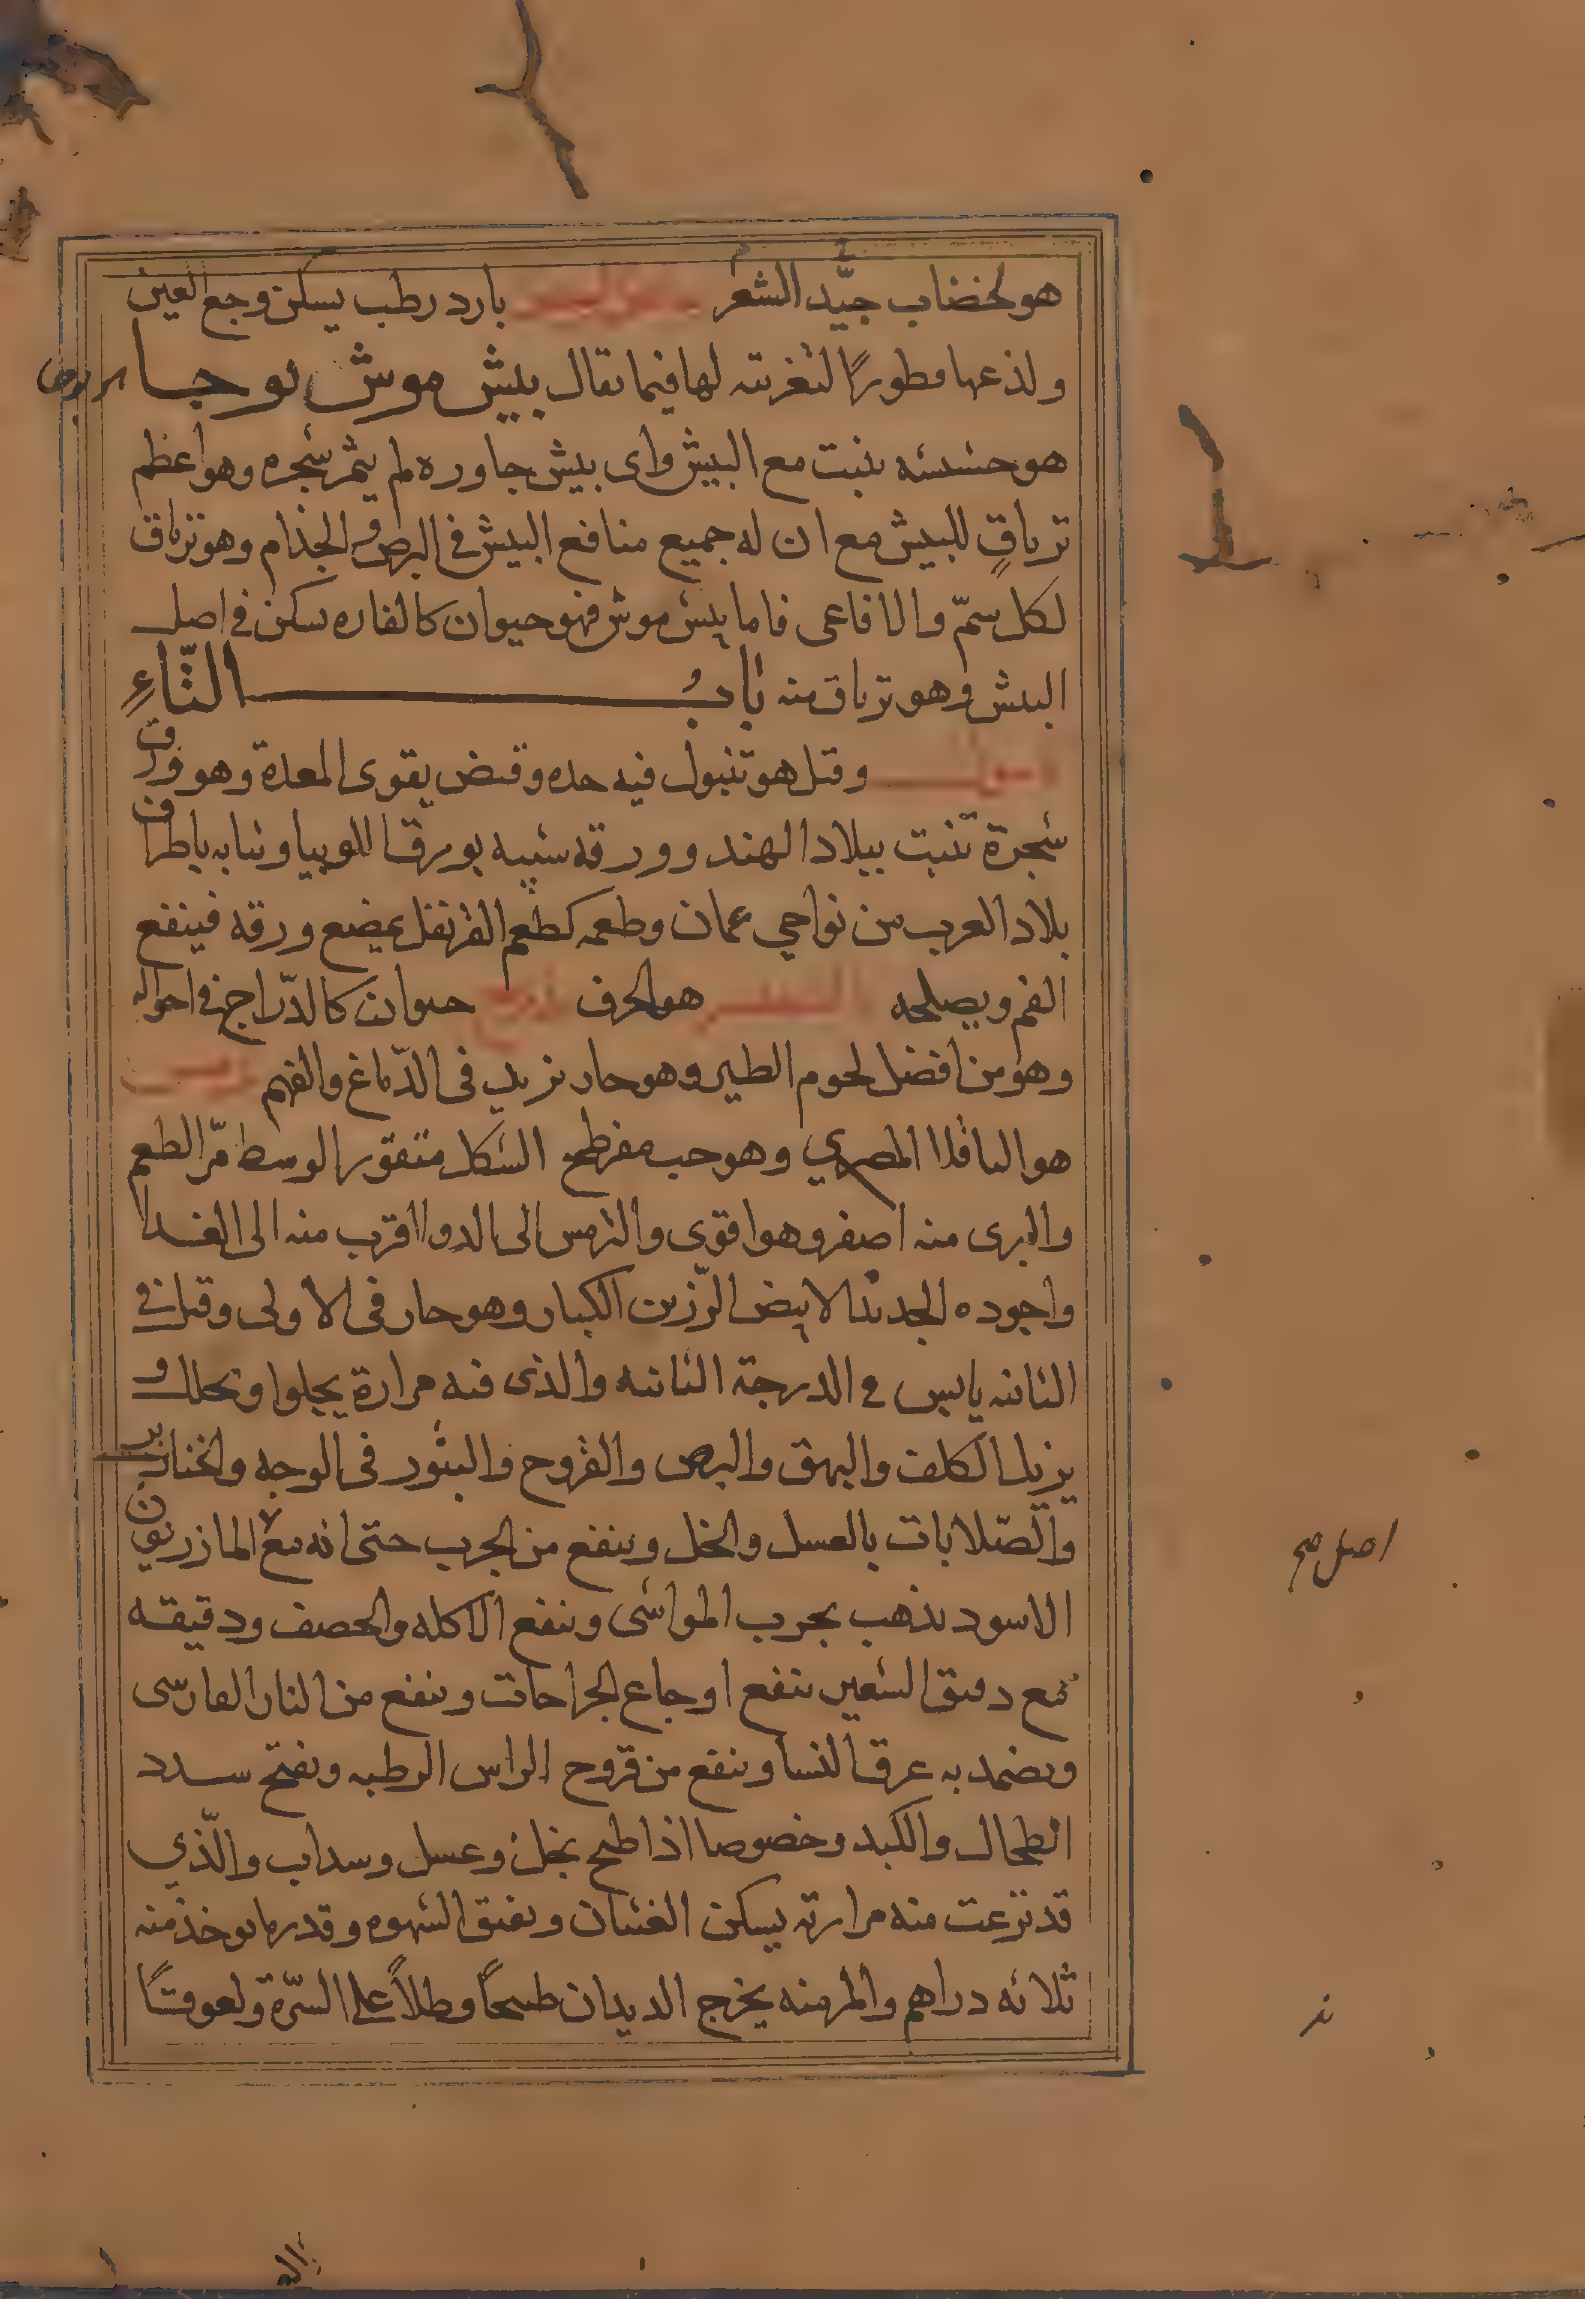 هو لخضاب جيّد الشعر بارد رطب يسكن وجع العين
ولذعها قطورًا لتغريته لها فيما يقال بيش موش بوجا
هو حشيشه ينبت مع البيش واى بيش جاوره لم يثمر شجره وهو اعظم
ترياقٍ للبيش مع ان له جميع منافع البيش في البرص والجذام وهو ترياق
لكل سمّ والافاعى فاما بيش موش فهو حيوان كالفاره يسكن في اصل
البيش وهو ترياق منه بابُ التّاءِ
وقيل هو تنبول فيه حده وقبض يقوى المعدة وهو ورق
شجرة تنبت ببلاد الهند وورقه شبيه بورق اللوبيا ونباته باطراف
بلاد العرب من نواحي عمان وطعمه كطعم القرنفل يمضغ ورقه فينفع
الفم ويصلحه هو الحرف حيوان كالدّراج في احواله
وهو من افضل لحوم الطير وهو حار يزيد فى الدّماغ والفهم
هو الباقلا المصري وهو حب مفرطح الشكل منقور الوسط مرّ الطعم
والبرى منه اصفر وهو اقوى والترمس الى الدوا اقرب منه الى الغدا
واجوده الجديد الابيض الرّزين الكبار وهو حار فى الاولى وقيل في
الثانيه يابس في الدرجة الثانيه والذى فيه مرارة يجلوا ويحلل و
يزيل الكلف والبهق والبرص والقروح والبثور فى الوجه والخنازير
والصّلابات بالعسل والخل وينفع من الجرب حتى انه مع المازريون
الاسود يذهب بجرب المواشى وينفع الاكله والحصف ودقيقه
مع دقيق الشعير ينفع اوجاع الجراحات وينفع من النار الفارسى
ويضمد به عرق النسا وينفع من قروح الراس الرطبه ويفتح سدد
الطحال والكبد وخصوصا اذا طبخ بخل وعسل وسداب والّذي
قد نزعت منه مرارته يسكن الغثيان ويفتق الشهوه وقدر ما يوخذ منه
ثلاثه دراهم والمر منه يخرج الديدان طبيخًا وطلاً على السرّة ولعوقًا
اصل صح